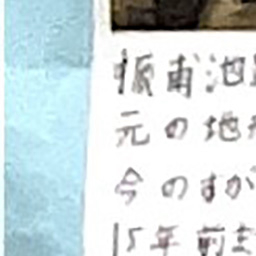 振甫池
元の地
今のすが
15年前ま